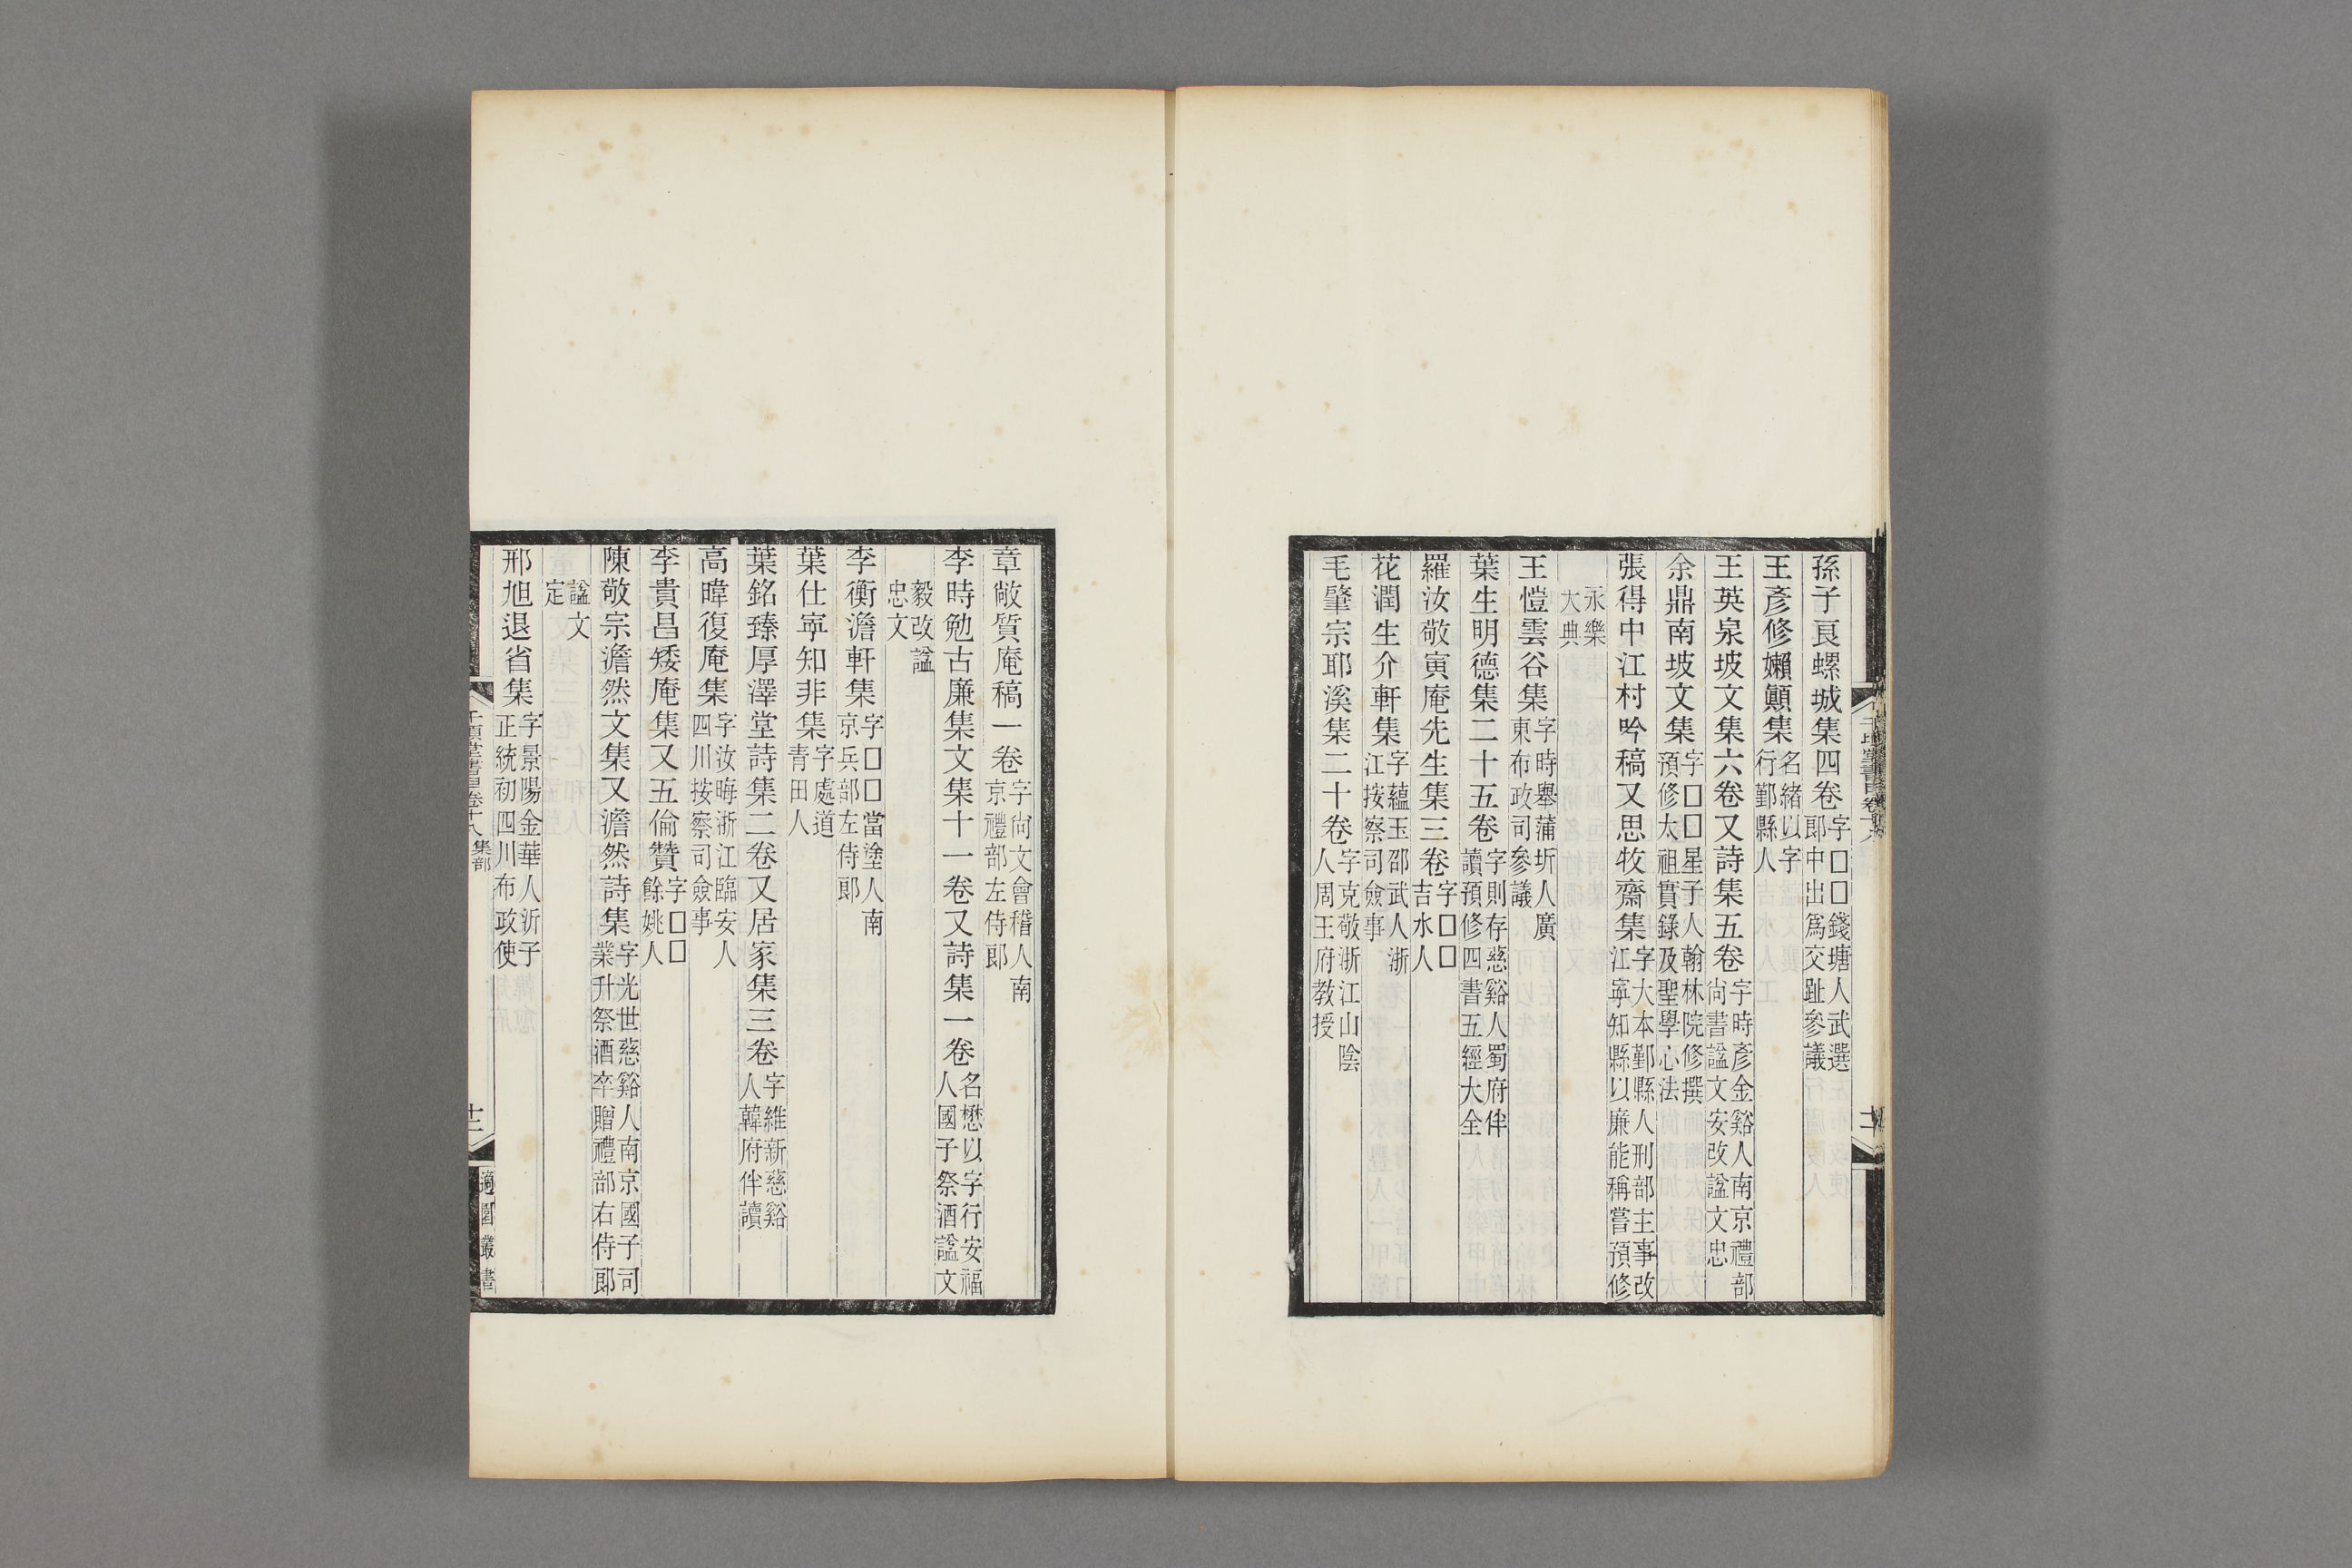 孫子良螺城集四卷字□□錢塘人武選郎中出爲交趾參議
王彥修嬾顚集名緒以字行鄞縣人
王英泉坡文集六卷又詩集五卷字時彥金谿人南京禮部尙書諡文安改諡文忠
余鼎南坡文集字□□星子人翰林院修撰預修太祖實錄及聖學心法
張得中江村吟稿又思牧齋集字大本鄞縣人刑部主事改江寧知縣以廉能稱嘗預修
永樂大典
王愷雲谷集字時舉蒲圻人廣東布政司參議
葉生明德集二十五卷字則存慈谿人蜀府伴讀預修四書五經大全
羅汝敬寅庵先生集三卷字□□吉水人
花潤生介軒集字蘊玉邵武人浙江按察司僉事
毛肇宗耶溪集二十卷字克敬浙江山陰人周王府教授
章敞質庵稿一卷字尙文會稽人南京禮部左侍郎
李時勉古廉集文集十一卷又詩集一卷名懋以字行安福人國子祭酒諡文
毅改諡忠文
李衡澹軒集字□□當塗人南京兵部左侍郎
葉仕寧知非集字處道青田人
葉銘臻厚澤堂詩集二卷又居家集三卷字維新慈谿人韓府伴讀
高暐復庵集字汝晦浙江臨安人四川按察司僉事
李貴昌矮庵集又五倫贊字□□餘姚人
陳敬宗澹然文集又澹然詩集字光世慈谿人南京國子司業升祭酒卒贈禮部右侍郎
諡文定
邢旭退省集字景陽金華人沂子正統初四川布政使
千頃堂書目卷十八 集部
十二
適園叢書